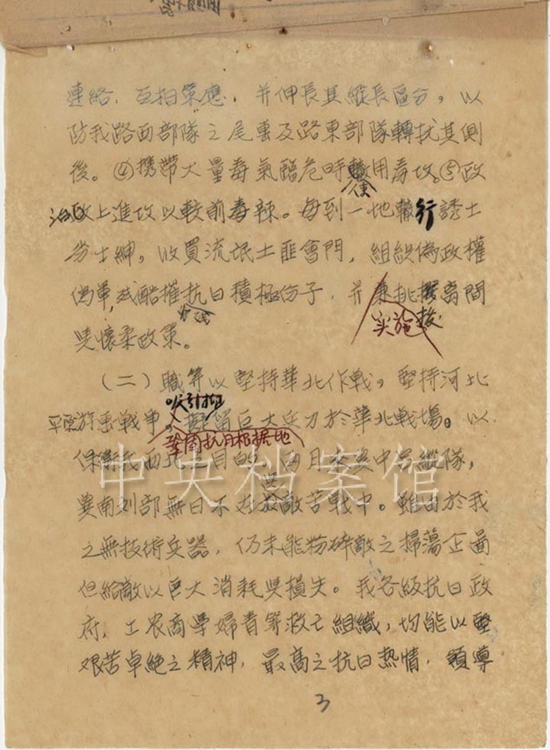 連絡，互相策應，并伸長其縱長區分，以
防我路西部隊之尾擊及路東部隊轉扰其側
後。④攜帶大量毒氣臨危時使用毒攻。⑤政
治上進攻以較前毒辣。每到一地輙行誘士
劣土紳。收買流氓土匪會門，組織偽政權
偽軍，或酷摧抗日積極份子，并兼挑撥離間
實施
與懷柔政策。
（二）職等以堅持華北作戰，堅持河北
吸引抑
平原游击戰爭，留巨大兵力於華北戰場。以
鞏固抗日根据地
保衛我西北目的，月來冀中呂縱隊，
冀南刘部無日不在敵苦戰中。雖由於我
之無技術兵器，仍未能粉碎敵之掃蕩企圖
但給敵以巨大消耗與損失。我各級抗日政
府，工农商學婦青等救亡組織，均能以堅
艰苦卓絕之精神，最高之抗日热情，領導
3
中央档案馆